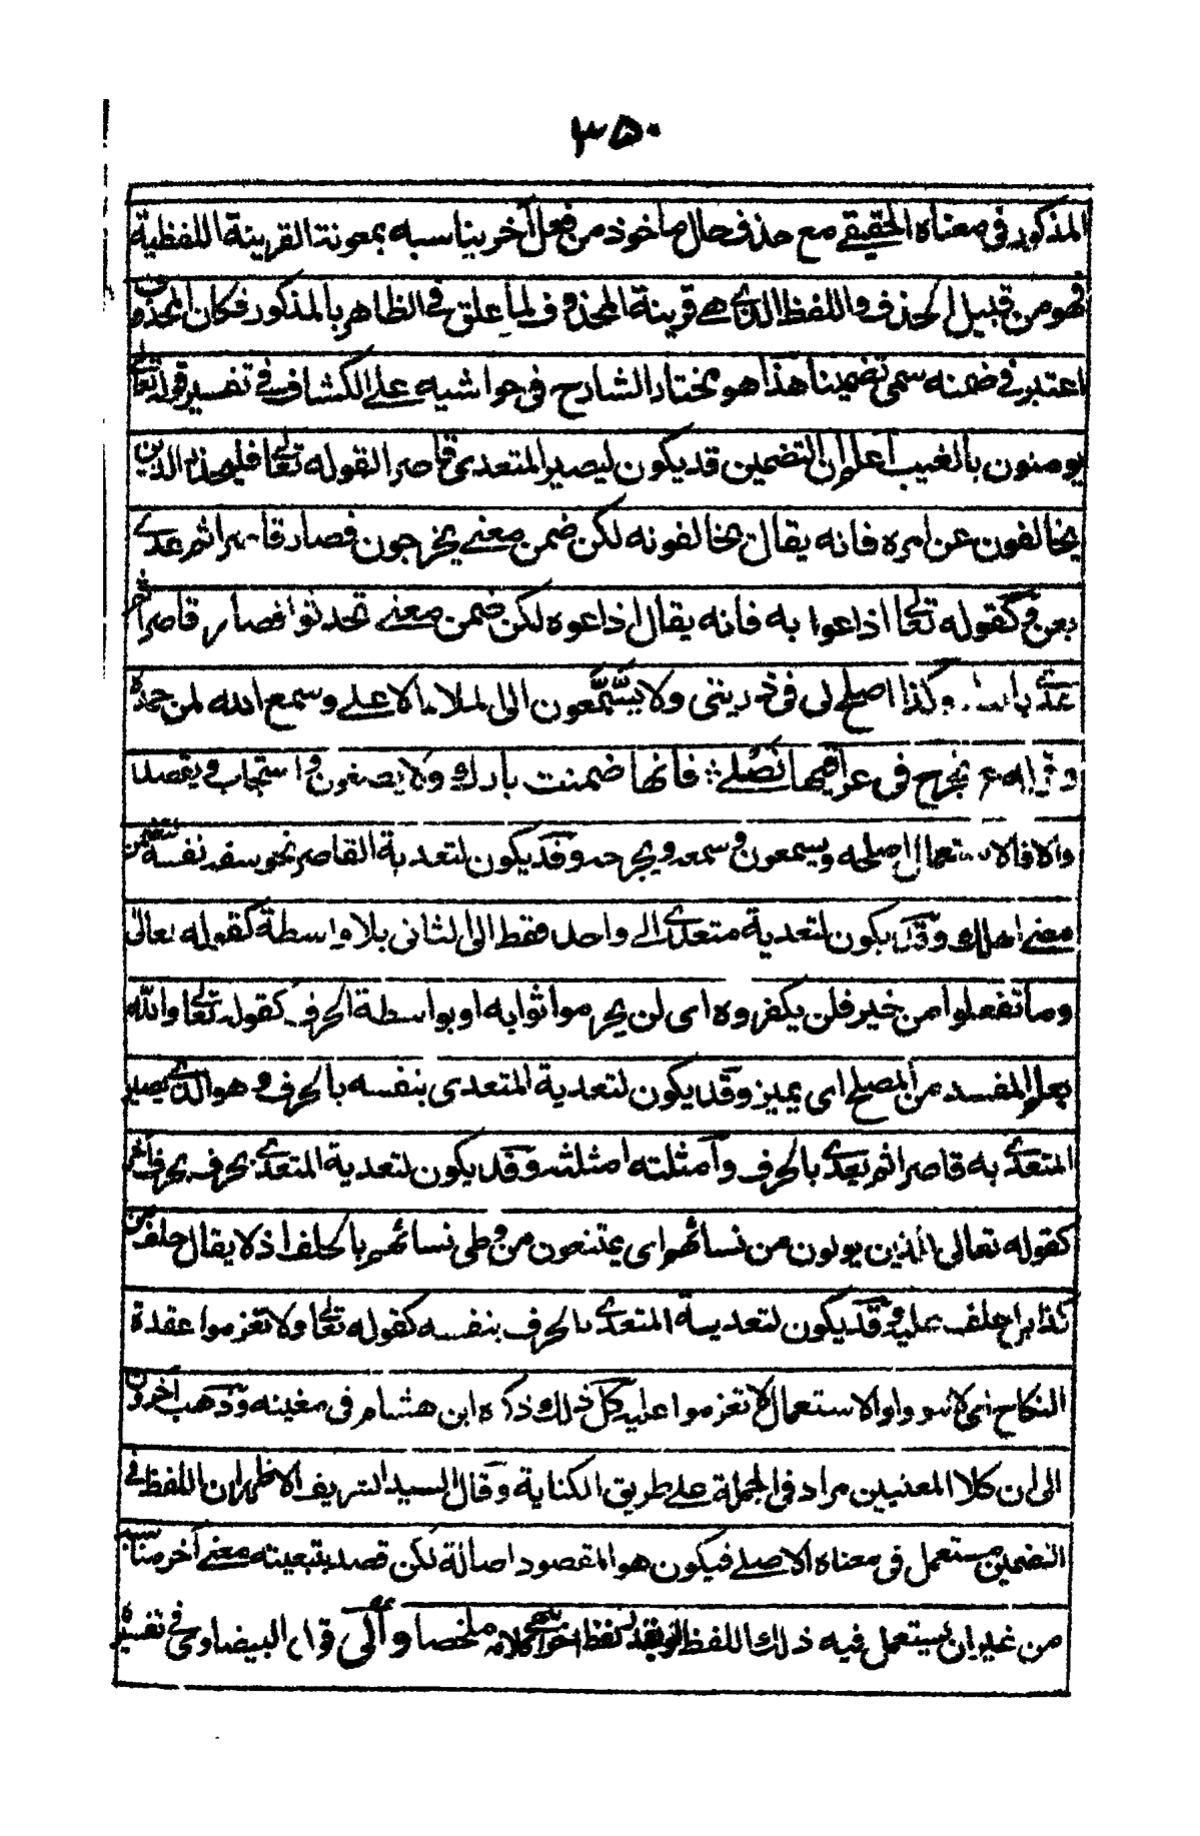 ٣٥٠
المذكور في معناه الحقيقي مع حذف حال ماخوذ من فعل آخر يناسبه بمعونة القرينة اللفظية
فهو من قبيل الحذف واللفظ الذي هي قرينة المحذوف لما علق في الظاهر بالمذكور فكان المحذوف
اعتبر في ضمنه سمي تضمينا هذا هو مختار الشارح في حواشيه على الكشاف في تفسير قوله تعالى
يومنون بالغيب اعلم ان التضمين قد يكون ليصير المتعدى قاصرا لقوله تعالى فليحذر الذين
يخالفون عن امره فانه يقال يخالفونه لكن ضمن معنى يخرجون فصار قاصرا ثم عدى
بعن وكقوله تعالى اذاعوا به فانه يقال اذاعوه لكن ضمن معنى تحدثوا فصار قاصرا ثم
عدى بالباء وكذا اصلح لى فى ذريتى ولا يسّمّعون الى الملاء الاعلى وسمع الله لمن حمده
يجرح فى عراقيبها نصلى فانها ضمنت بارك ولا يصغون واستجاب و
والا فالاستعمال اصلحه ويسمعون وسمعه ويجرحه وقد يكون لتعدية القاصر نحو سفه نفسه تضمن
معنى اهلك وقد يكون لتعدية متعدى الى واحد فقط الى الثانى بلا واسطة كقوله تعالى
وما تفعلوا من خير فلن يكفروه اى لن يحرموا ثوابه او بواسطة الحرف كقوله تعالى والله
يعلم المفسد من المصلح اى يميز وقد يكون لتعدية المتعدى بنفسه بالحرف وهو الذي يصير
المتعدى به قاصرا ثم يعدى بالحرف وامثلته امثلته وقد يكون لتعدية المتعدى بحرف بحرف آخر
كقوله تعالى للذين يولون من نسائهم اى يمتنعون من وطى نسائهم بالحلف اذ لا يقال حلف من
كذا بل حلف عليه وقد يكون لتعدية المتعدى بالحرف بنفسه كقوله تعالى ولا تعزموا عقدة
النكاح اى لا تنووا والاستعمال لا تعزموا عليه كل ذلك ذكره ابن هشام فى مغنيه وذهب آخرون
الى ان كلا المعنيين مراد في الجملة على طريق الكناية وقال السيد الشريف الاظهر ان اللفظ في
التضمين مستعمل فى معناه الاصلى فيكون هو المقصود اصالة لكن قصد بتبعيته معنى آخر مناسبه
من غير ان يستعمل فيه ذلك اللفظ او يقدر لفظ آخر انتهى كلامه ملخصا والى قول البيضاوى في تفسيره